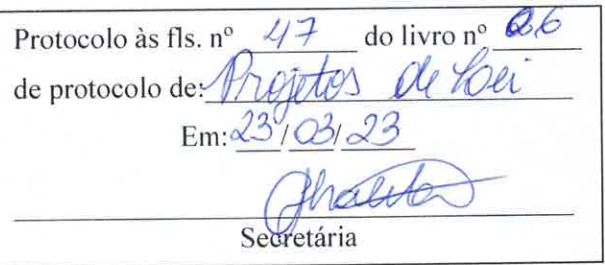 Protocolo às fls. nº 47 do livro nº 06
de protocolo de: Projetos de Lei
Em: 23/03/23
Secretária